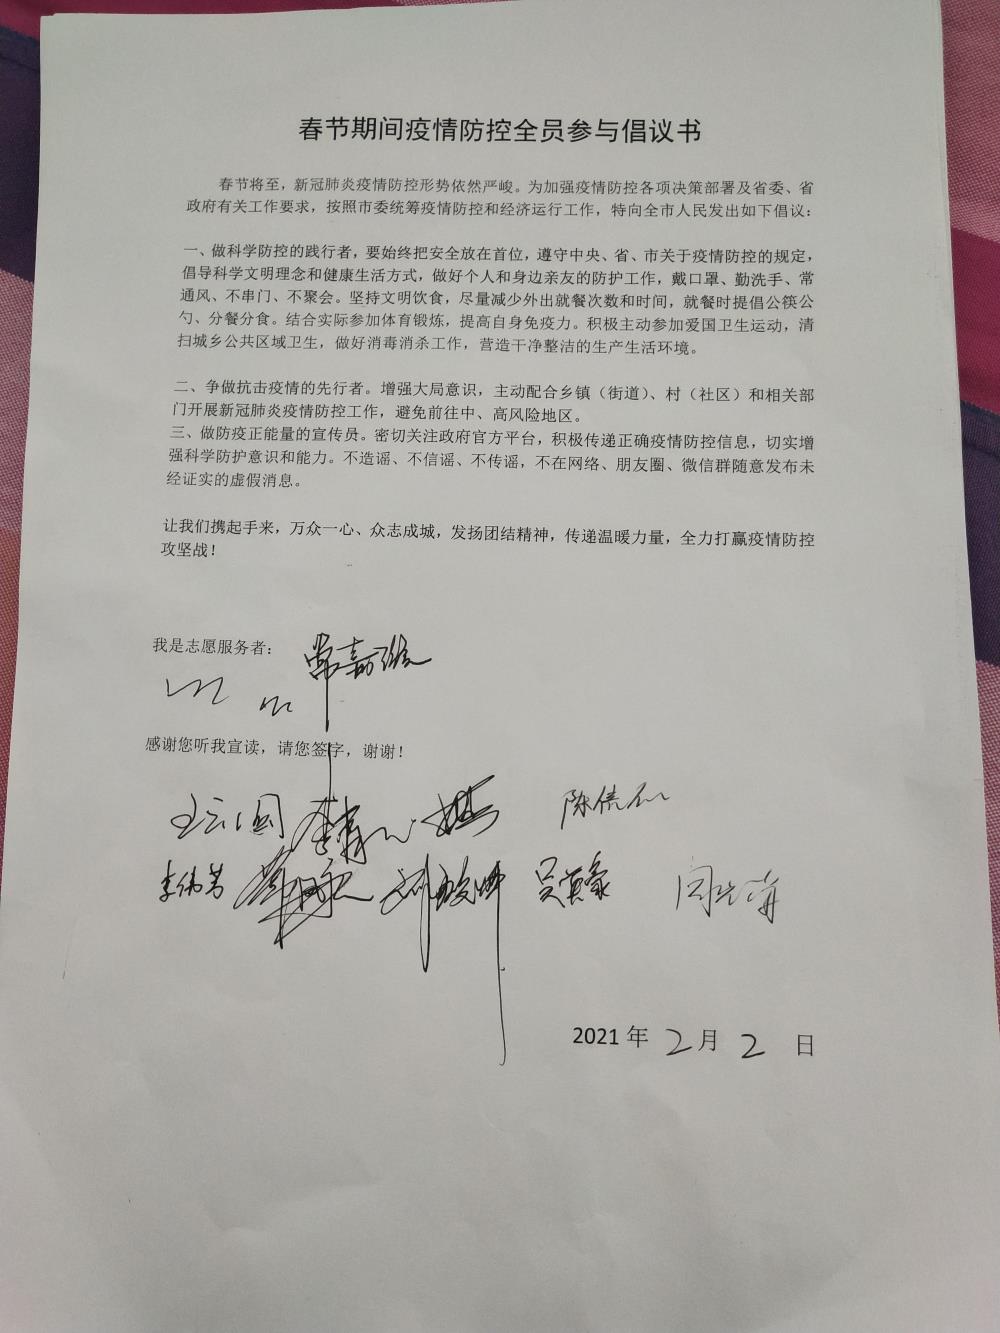 春节期间疫情防控全员参与倡议书
春节将至，新冠肺炎疫情防控形势依然严峻。为加强疫情防控各项决策部署及省委、省
政府有关工作要求，按照市委统筹疫情防控和经济运行工作，特向全市人民发出如下倡议：
一、做科学防控的践行者，要始终把安全放在首位，遵守中央、省、市关于疫情防控的规定，
倡导科学文明理念和健康生活方式，做好个人和身边亲友的防护工作，戴口罩、勤洗手、常
通风、不串门、不聚会。坚持文明饮食，尽量减少外出就餐次数和时间，就餐时提倡公筷公
勺、分餐分食。结合实际参加体育锻炼，提高自身免疫力。积极主动参加爱国卫生运动，清
扫城乡公共区域卫生，做好消毒消杀工作，营造干净整洁的生产生活环境。
二、争做抗击疫情的先行者。增强大局意识，主动配合乡镇（街道）、村（社区）和相关部
门开展新冠肺炎疫情防控工作，避免前往中、高风险地区。
三、做防疫正能量的宣传员。密切关注政府官方平台，积极传递正确疫情防控信息，切实增
强科学防护意识和能力。不造谣、不信谣、不传谣，不在网络、朋友圈、微信群随意发布未
经证实的虚假消息。
让我们携起手来，万众一心、众志成城，发扬团结精神，传递温暖力量，全力打赢疫情防控
攻坚战！
我是志愿服务者：
感谢您听我宣读，请您签字，谢谢！
李伟芳
2021 年 2 月 2 日